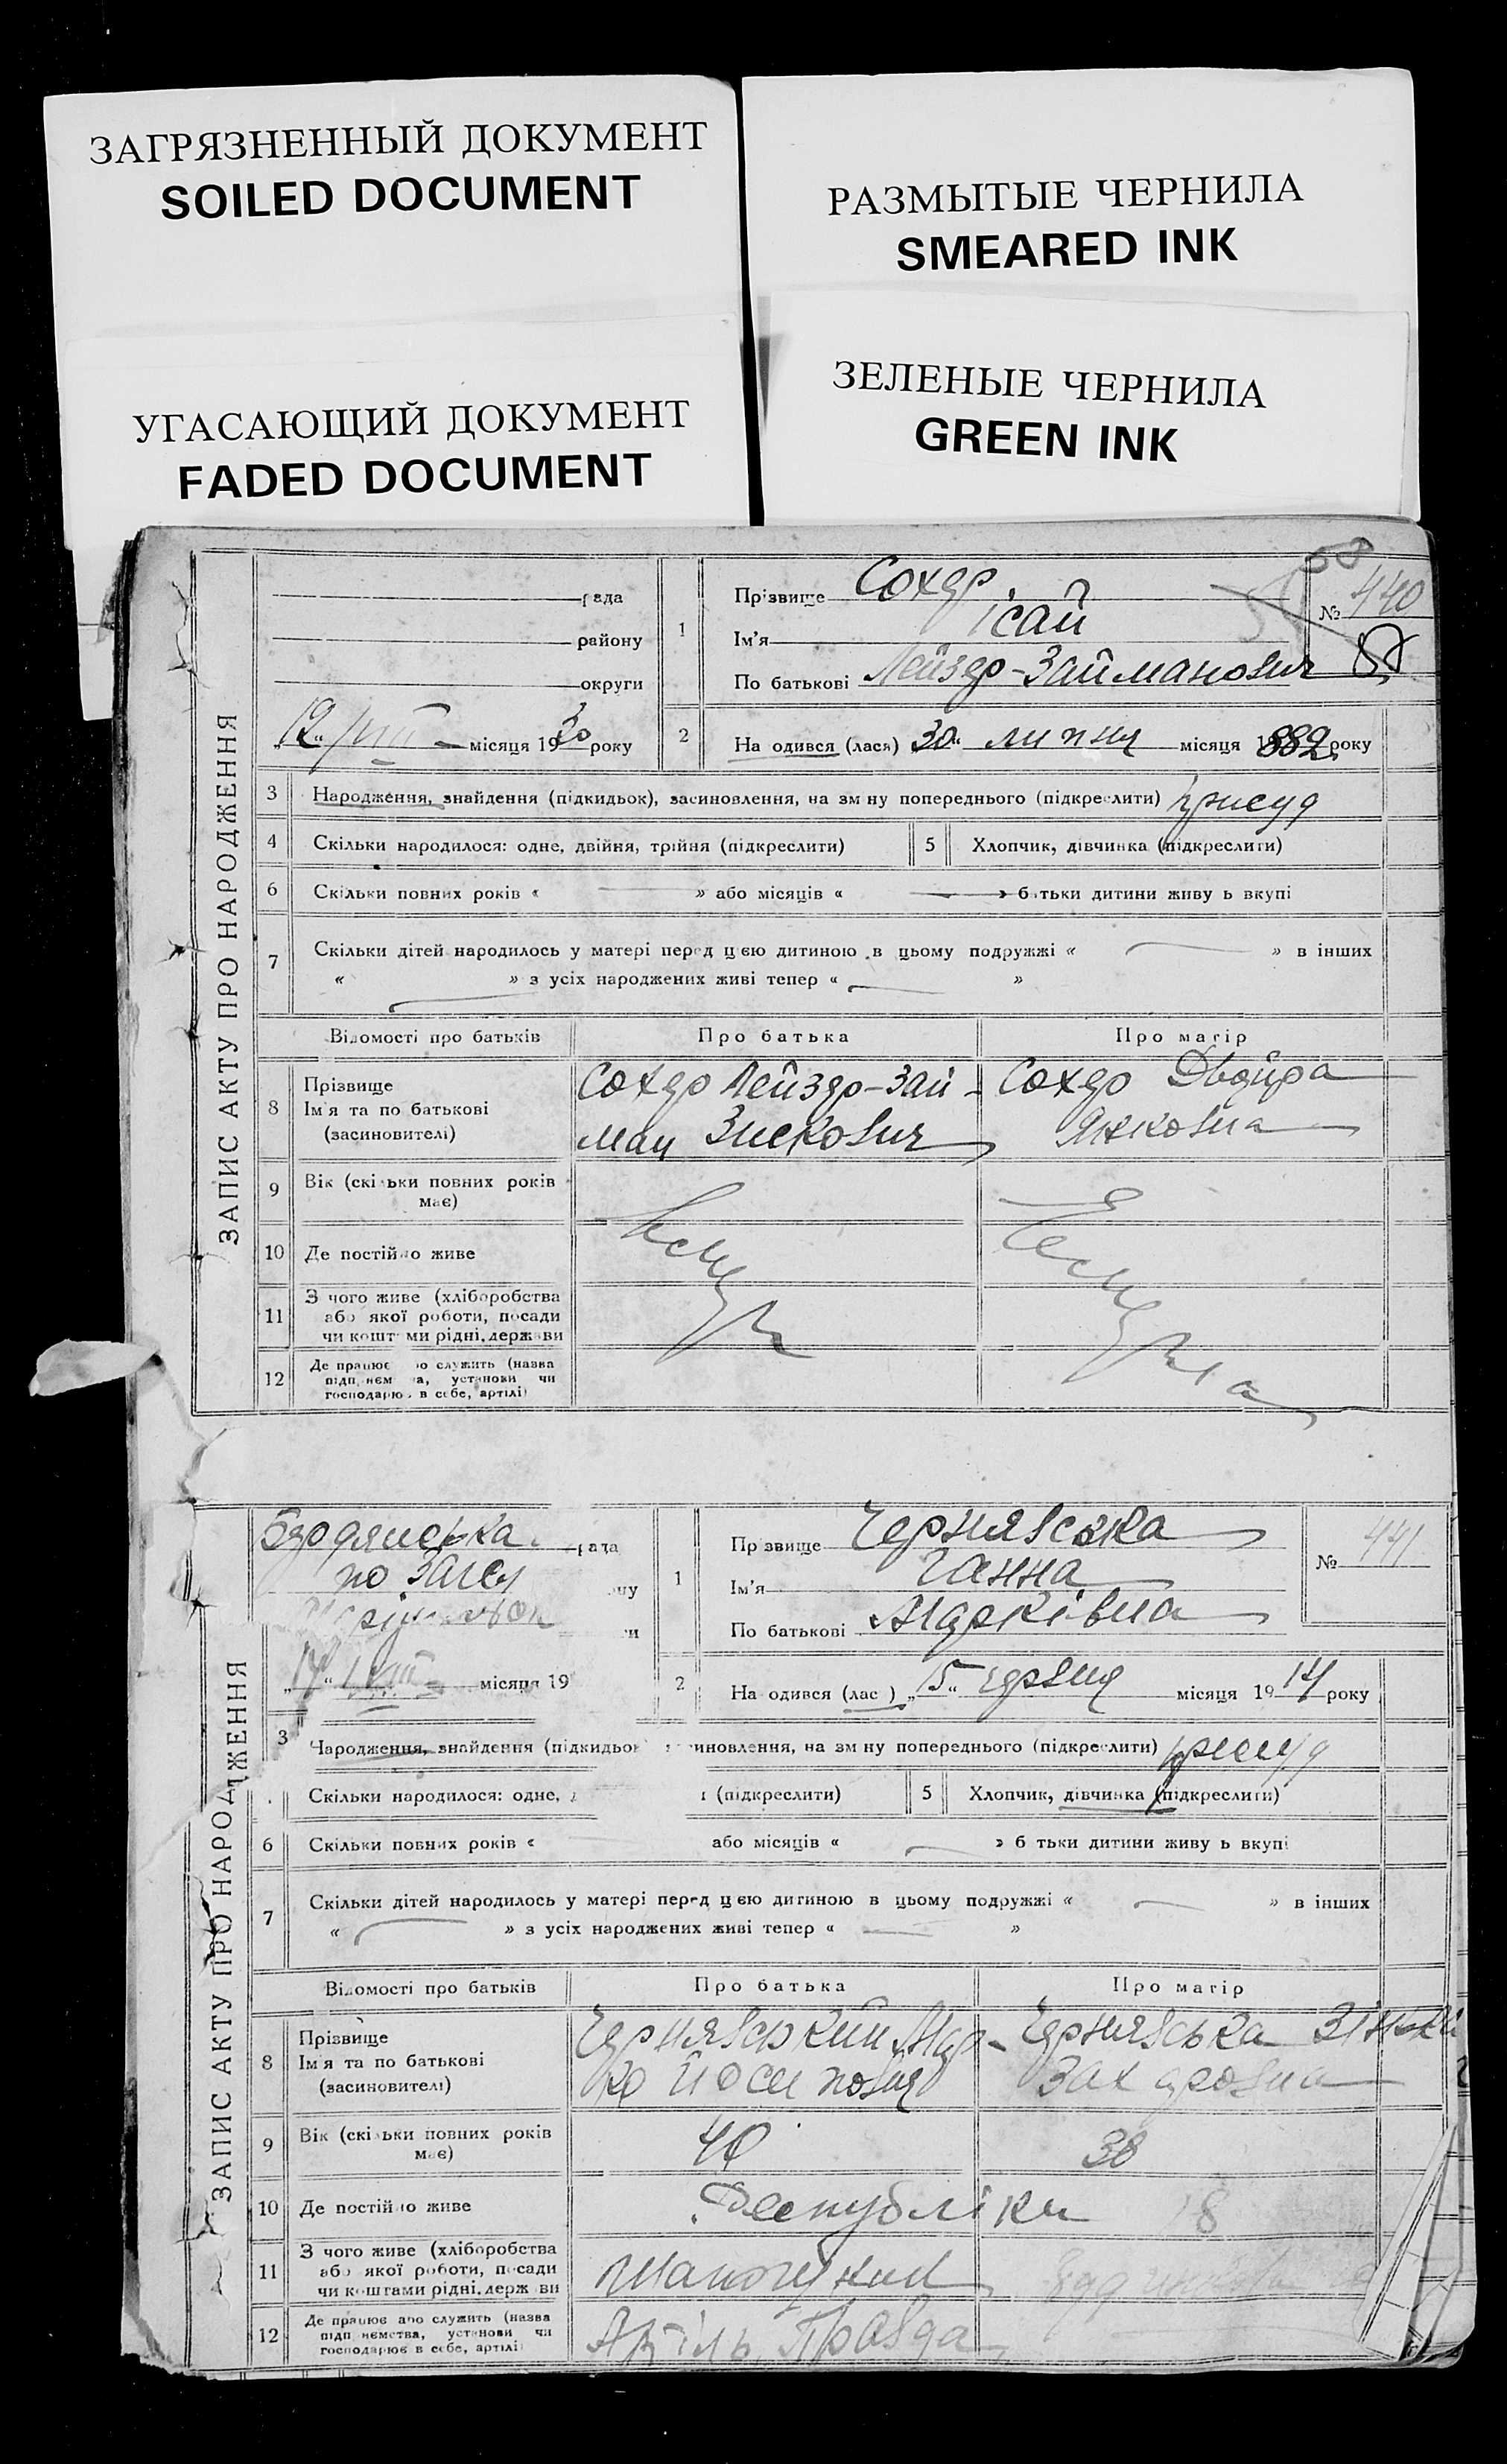 ЗАГРЯЗНЕННЫЙ ДОКУМЕНТ
SOILED DOCUMENT
РАЗМЫТЫЕ ЧЕРНИЛА
SMEARED INK
УГАСАЮЩИЙ ДОКУМЕНТ
FADED DOCUMENT
ЗЕЛЕНЫЕ ЧЕРНИЛА
GREEN INK
ЗАПИС АКТУ ПРО НАРОДЖЕННЯ
рада
району
округи
„12“ VIII місяця 1930 року
1
Прізвище Сохер
Ім'я Ісай
По батькові Лейзер-Займанович
№ 440
58
2 На одився (лася) „30“ липня місяця 1882 року
3 Народження, знайдення (підкидьок), засиновлення, на зм ну попереднього (підкреслити) присуд
4 Скільки народилося: одне, двійня, трійня (підкреслити)
5 Хлопчик, дівчинка (підкреслити)
6 Скільки повних років « » або місяців « » батьки дитини живу ь вкупі
7 Скільки дітей народилось у матері перед цією дитиною в цьому подружжі « » в інших
« » з усіх народжених живі тепер « »
Відомості про батьків Про батька Про матір
8 Прізвище
Ім'я та по батькові
(засиновителі)
Сохер Лейзер-Зай-
ман Зискович
Сохер Двойра
Янковна
9 Вік (скільки повних років має)
10 Де постійно живе
11 З чого живе (хліборобства
або якої роботи, посади
чи коштами рідні, держави
12 Де працює або служить (назва
підп иєм ва, установи чи
господарює в себе, артілі)
ЗАПИС АКТУ ПРО НАРОДЖЕННЯ
Бердянська рада
по загсу
„17“ VIII місяця 19
1
Пр звище Чернявська
Ім'я Ганна
По батькові Марківна
№ 441
2 На одився (лас ) „15“ червня місяця 1914 року
3 Народження, знайдення (підкидьок иновлення, на зм ну попереднього (підкреслити) присуд
Скільки народилося: одне, (підкреслити)
5 Хлопчик, дівчинка (підкреслити)
6 Скільки повних років « або місяців « » б тьки дитини живу ь вкупі
7 Скільки дітей народилось у матері перед цією дитиною в цьому подружжі « » в інших
« » з усіх народжених живі тепер « »
Відомості про батьків Про батька Про матір
8 Прізвище
Ім'я та по батькові
(засиновителі)
Чернявський Мар-
ко Йосипович
Чернявська
Захаровна
9 Вік (скільки повних років має)
38
10 Де постійно живе
Республіки 18
11 З чого живе (хліборобства
або якої роботи, посади
чи коштами рідні, держ ви
12 Де працює або служить (назва
підп иємства, установи чи
господарює в себе, артілі
Артіль Правда